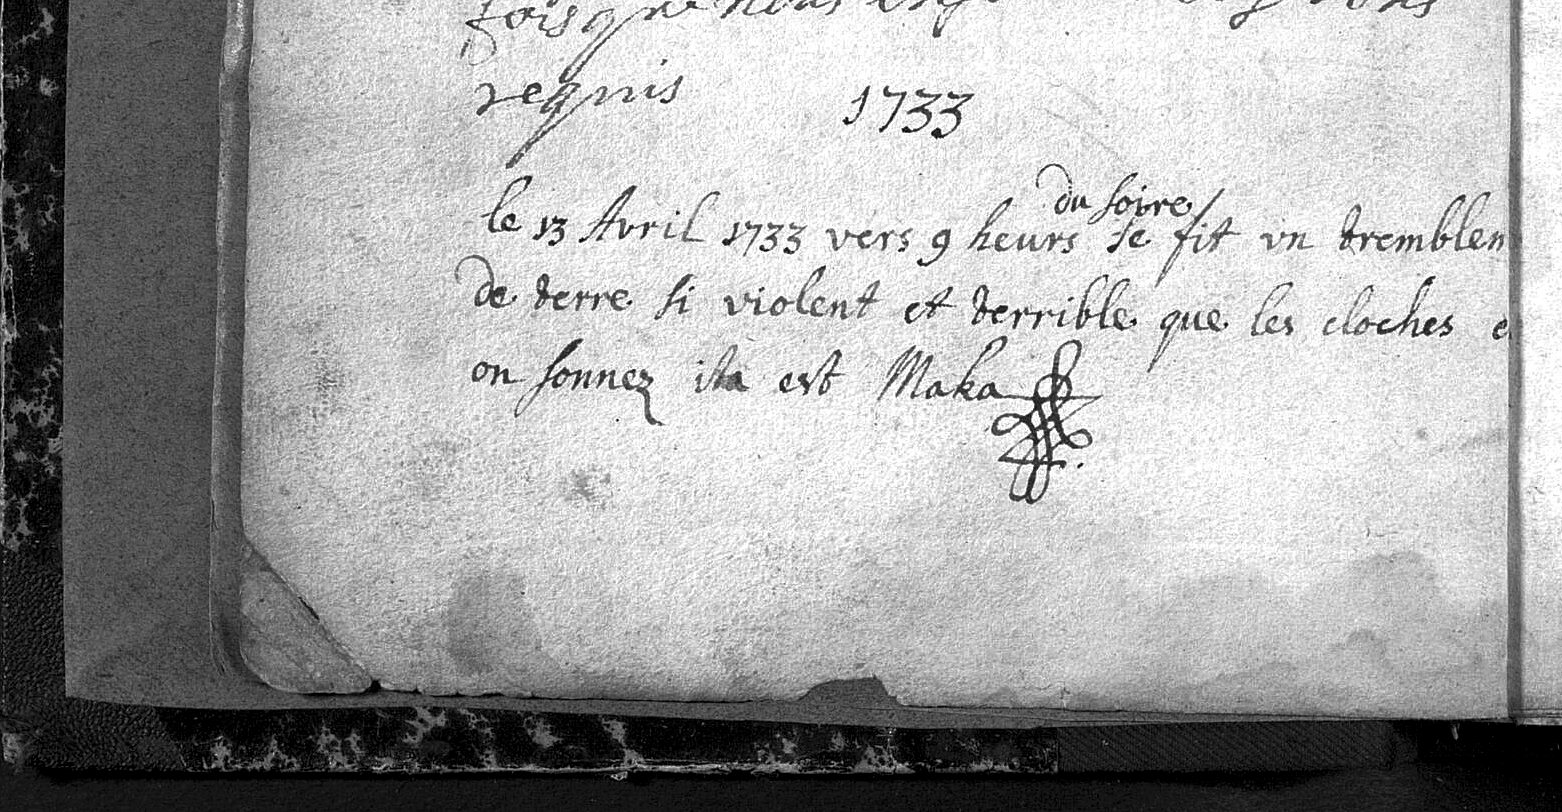 fois que nous
requis 1733
du soire
le 13 Avril 1733 vers 9 heurs se fit vn tremblem
de terre si violent et terrible que les cloches e
on sonnez ita est Maka